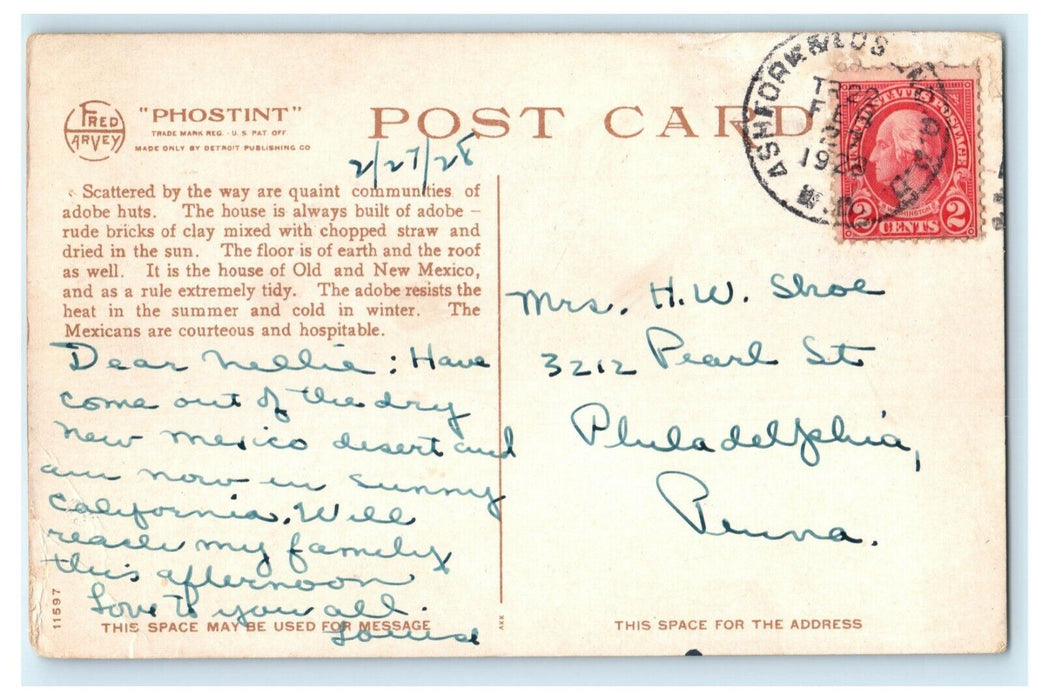 FRED
HARVEY
"PHOSTINT"
TRADE MARK REG. - U. S. PAT. OFF
MADE ONLY BY DETROIT PUBLISHING CO
POST CARD
ASHFORK & LOS
1928
2 CENTS 2
2/27/28
Scattered by the way are quaint communities of
adobe huts. The house is always built of adobe –
rude bricks of clay mixed with chopped straw and
dried in the sun. The floor is of earth and the roof
as well. It is the house of Old and New Mexico,
and as a rule extremely tidy. The adobe resists the
heat in the summer and cold in winter. The
Mexicans are courteous and hospitable.
Dear Nellie: Have
come out of the dry
New Mexico desert and
am now in sunny
California. Will
reach my family
this afternoon
Love to you all.
Louise
Mrs. H.W. Shoe
3212 Pearl St
Philadelphia,
Penna.
11597
THIS SPACE MAY BE USED FOR MESSAGE
AKK
THIS SPACE FOR THE ADDRESS